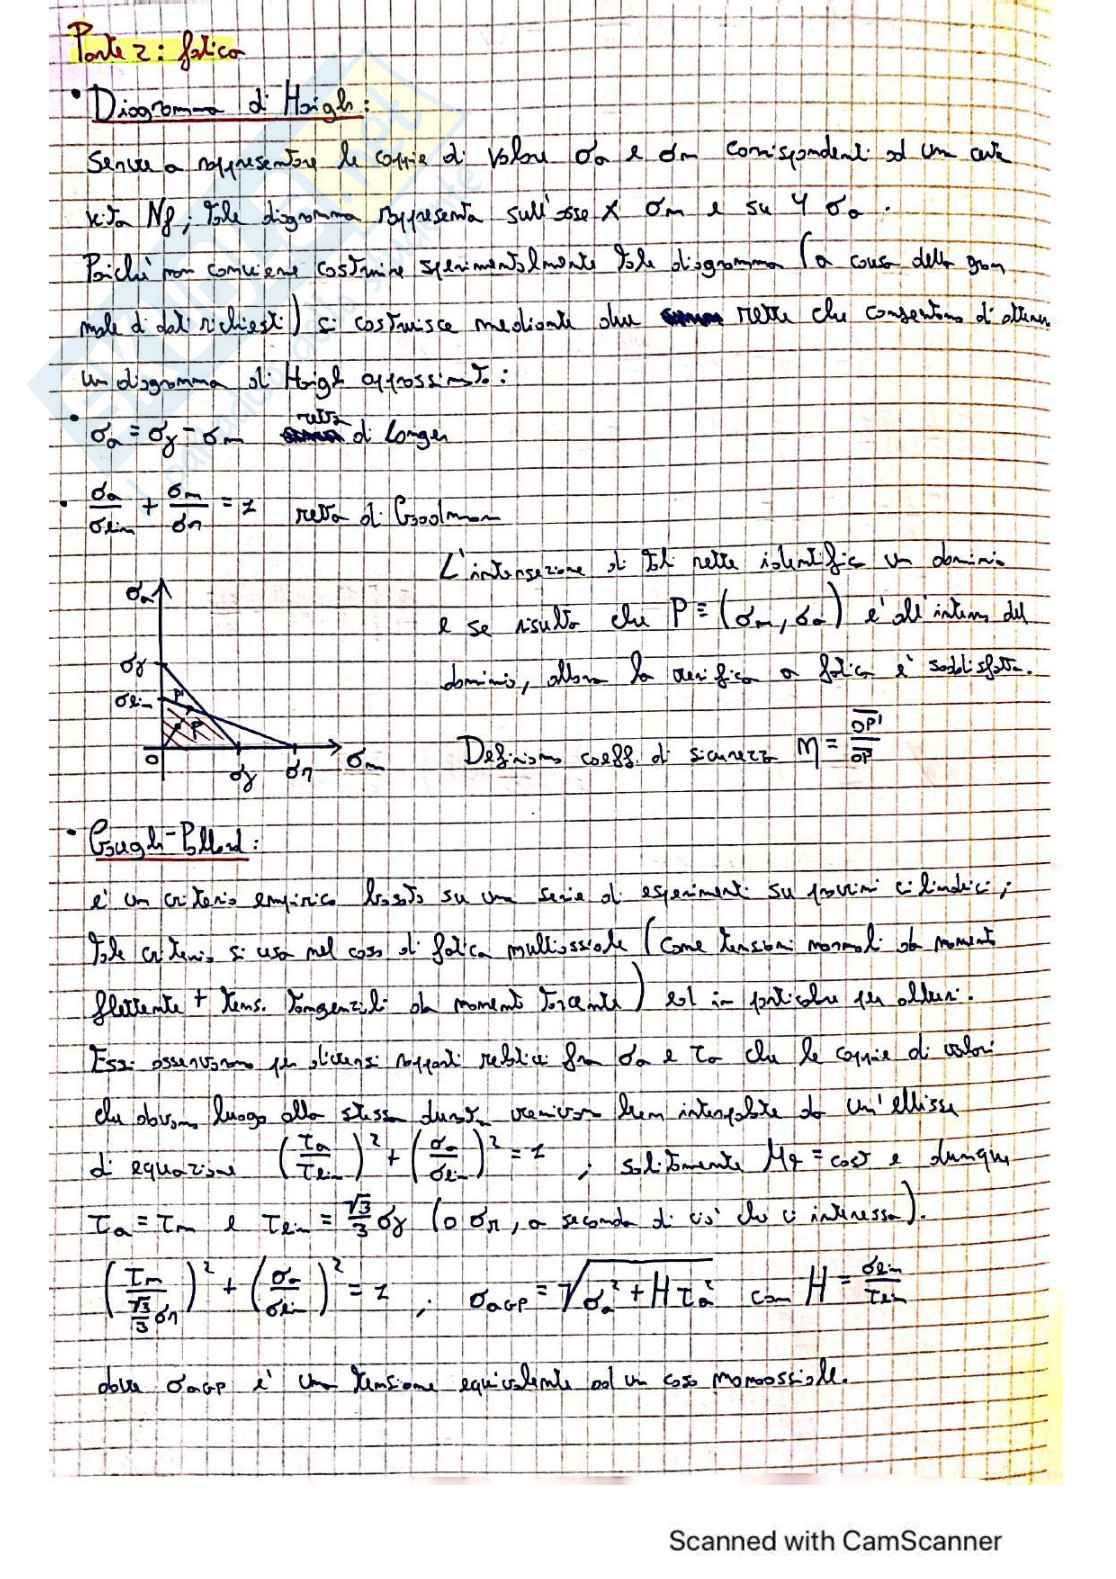 Parte 2: fatica
• Diagramma di Haigh:
Serve a rappresentare le coppie di valore σa e σm corrispondenti ad un certa
vita Nf; tale diagramma rappresenta sull'asse x σm e su y σa.
Poiché non conviene costruire sperimentalmente tale diagramma (a causa della gran
mole di dati richiesti) si costruisce mediante due rette che consentono di ottenere
un diagramma di Haigh approssimato:
• σa = σy - σm retta di Langer
• σa/σlim + σm/σr = 1 retta di Goodman
L'intersezione di tali rette identifica un dominio
e se risulta che P ≡ (σm, σa) e' all'interno del
dominio, allora la verifica a fatica e' soddisfatta.
σa
σy
σlim
P'
P
0
σy
σr
σm
Definiamo coeff. di sicurezza η = OP'/OP
• Gough-Pollard:
e' un criterio empirico basato su una serie di esperimenti su provini cilindrici;
tale criterio si usa nel caso di fatica multiassiale (come tensioni normali da momento
flettente + tens. tangenziali da momento torcente) ed in particolare per alberi.
Essi osservarono per diversi rapporti relativi fra σa e τa che le coppie di valori
che davano luogo alla stessa durata venivano bene interpolate da un'ellisse
di equazione (τa/τlim)² + (σa/σlim)² = 1 ; solitamente Mt = cost e dunque
τa = τm e τlim = √3/3 σy (o σr, a seconda di ciò che ci interessa).
(τm/(√3/3 σr))² + (σa/σlim)² = 1 ; σaGP = √(σa² + Hτa²) con H = σlim/τlim
dove σaGP e' una tensione equivalente ad un caso monoassiale.
Scanned with CamScanner